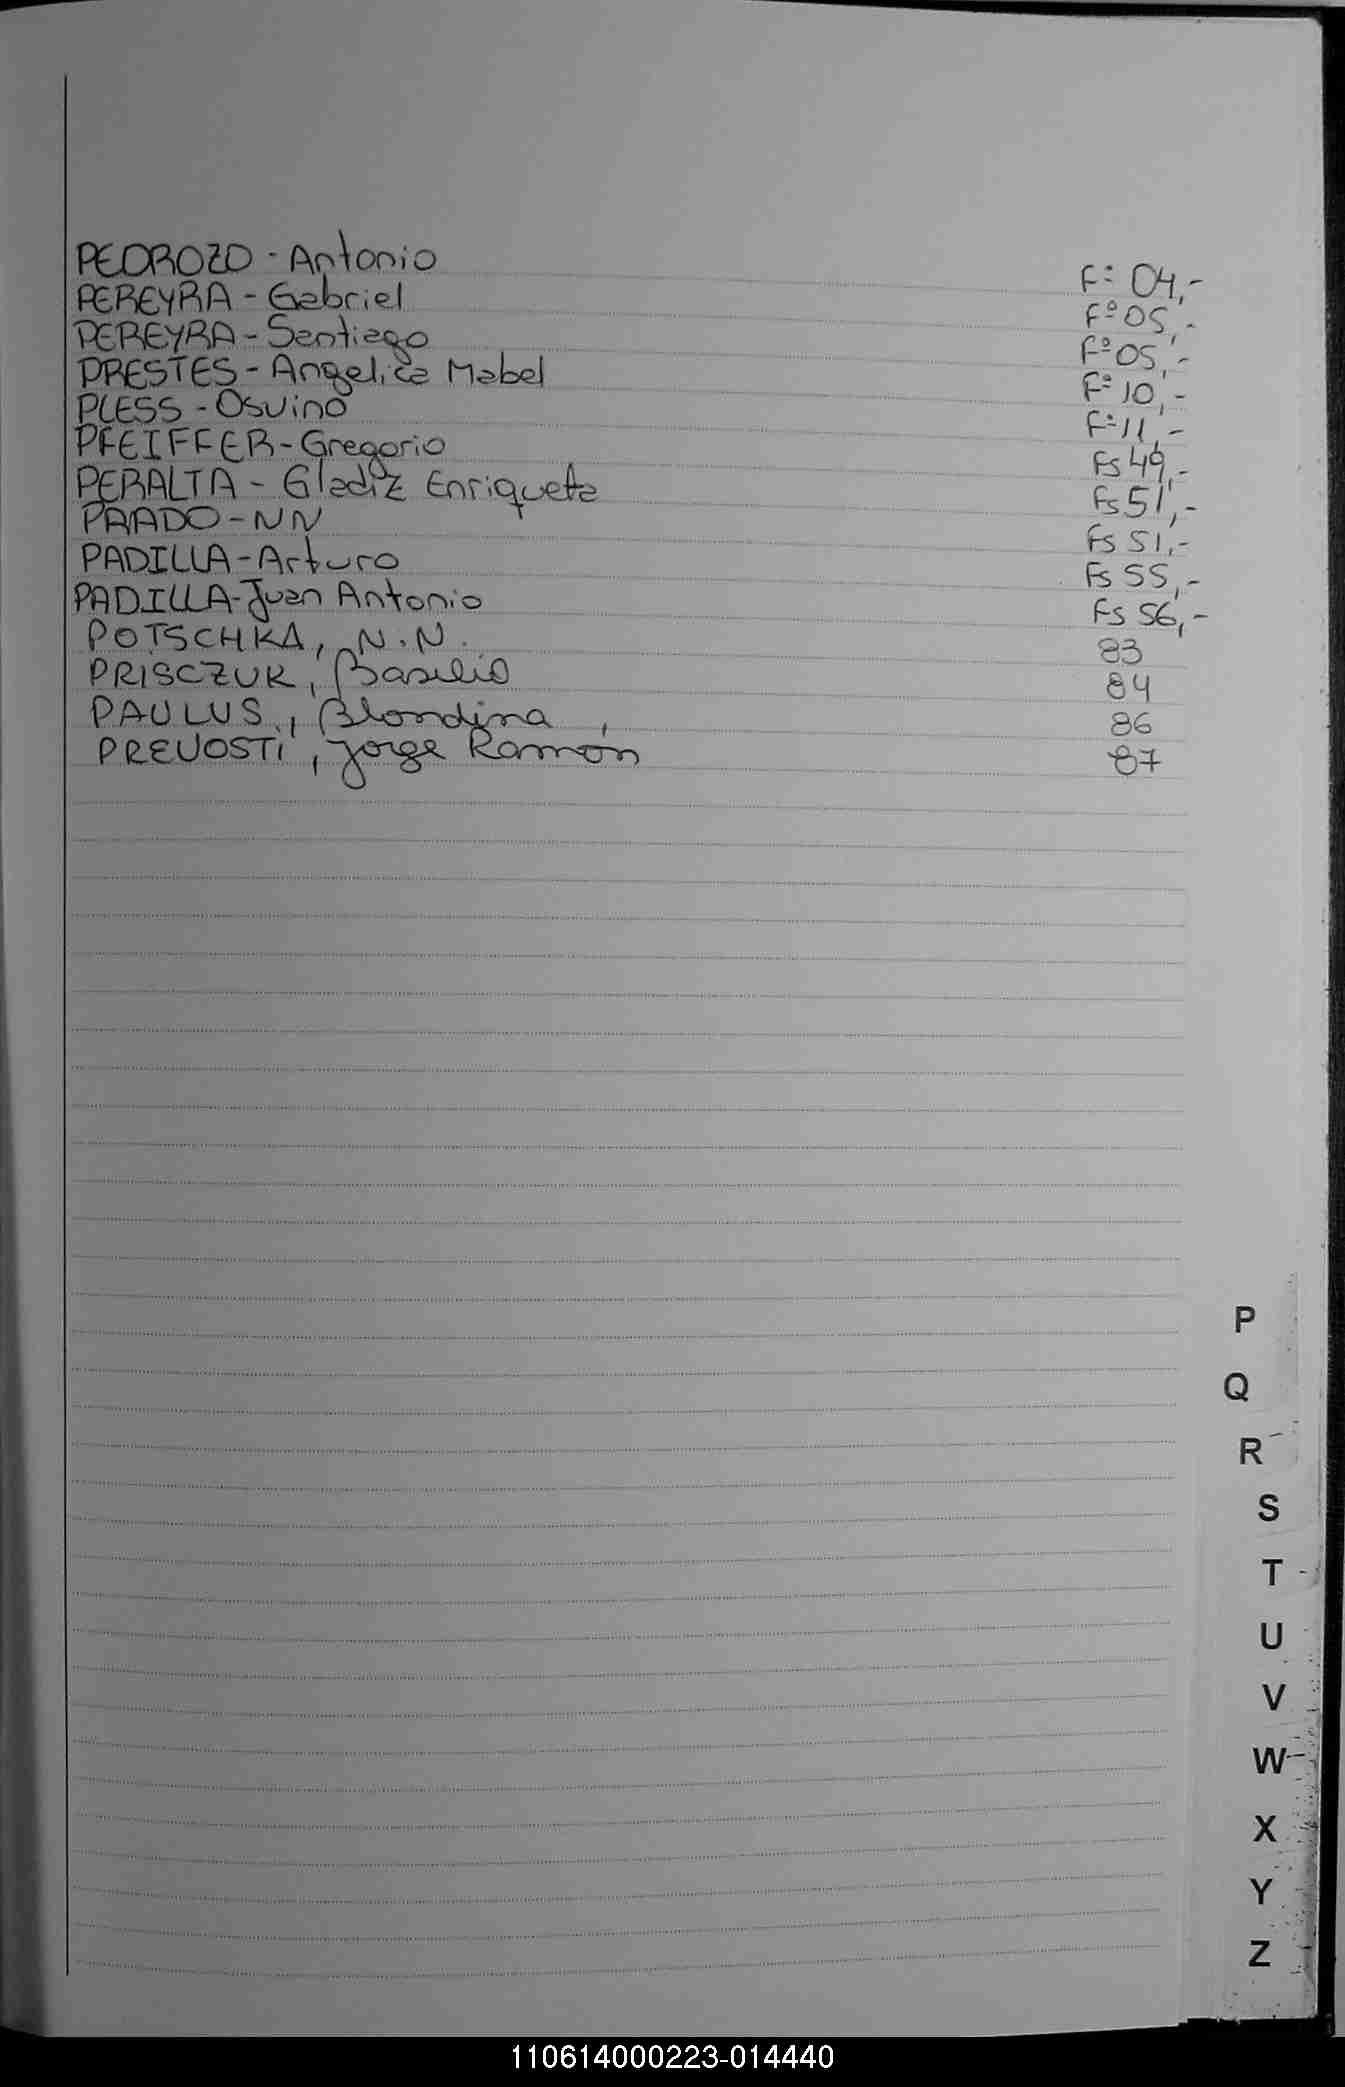 PEDROZO - Antonio F° 04,-
PEREYRA - Gabriel F° 05,-
PEREYRA - Santiago F° 05,-
PRESTES - Angelica Mabel F° 10,-
PLESS - Osvino F° 11,-
PFEIFFER - Gregorio Fs 49,-
PERALTA - Gladiz Enriqueta Fs 51,-
PRADO - NN Fs 51,-
PADILLA - Arturo Fs 55,-
PADILLA - Juan Antonio Fs 56,-
POTSCHKA, N.N. 83
PRISCZUK, Basilio 84
PAULUS, Blondina, 86
PREVOSTI, Jorge Ramón 87
P
Q
R
S
T
U
V
W
X
Y
Z
110614000223-014440